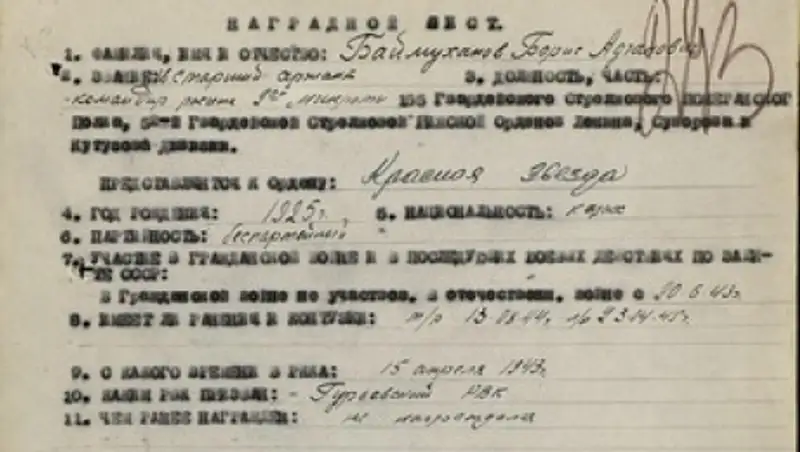 НАГРАДНОЙ ЛИСТ.
1. ФАМИЛИЯ, ИМЯ И ОТЧЕСТВО: Баймуханов Борис
2. ЗВАНИЕ: старший сержант 3. ДОЛЖНОСТЬ, ЧАСТЬ:
командир 155 Гвардейского Стрелкового
Полка, Гвардейской Стрелковой Орденов Ленина, Суворова и
Кутузова дивизии.
ПРЕДСТАВЛЯЕТСЯ К Ордену: Красная звезда
4. ГОД РОЖДЕНИЯ: 1925г. 5. НАЦИОНАЛЬНОСТЬ:
6. ПАРТИЙНОСТЬ: беспартейный
7. УЧАСТИЕ В ГРАЖДАНСКОЙ ВОЙНЕ И В ПОСЛЕДУЮЩИХ БОЕВЫХ ДЕЙСТВИЯХ ПО ЗАЩИ-
ТЕ СССР:
в Гражданской войне не участвов. в отечествен. войне с
8. ИМЕЕТ ЛИ РАНЕНИЯ И КОНТУЗИИ:
9. С КАКОГО ВРЕМЕНИ В РККА: 15 апреля 1943г
10. КАКИМ РВК ПРИЗВАН: - Гурьевский РВК
11. ЧЕМ РАНЕЕ НАГРАЖДЕН: не